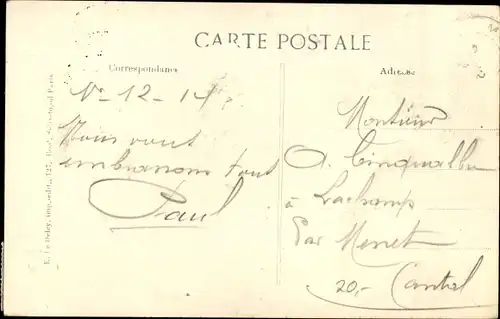 CARTE POSTALE
Correspondance
Adresse
12-14
Nous vous
embrassons tout
Paul
Monsieur
A.
à Lachamp
Par Menet
Cantal
20,-
E. Le Deley, imp.-édit., 127, Boul. Sébastopol Paris